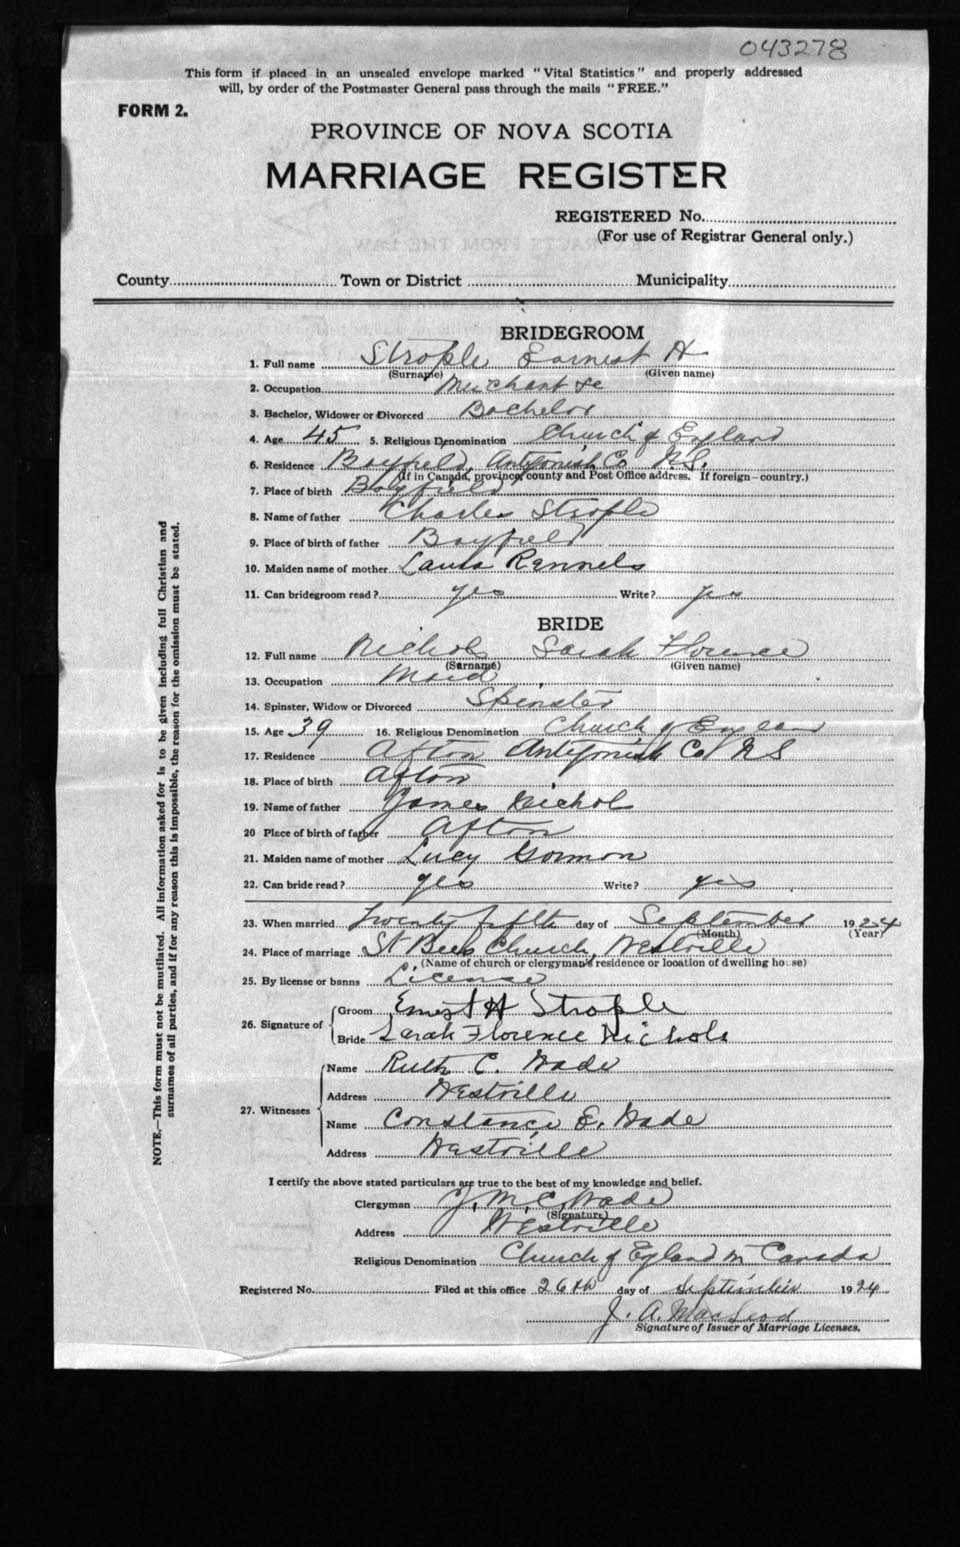 043278
This form if placed in an unsealed envelope marked "Vital Statistics" and properly addressed
will, by order of the Postmaster General pass through the mails "FREE."
FORM 2.
PROVINCE OF NOVA SCOTIA
MARRIAGE REGISTER
REGISTERED No.
(For use of Registrar General only.)
County Town or District Municipality
BRIDEGROOM
1. Full name Strople Earnest H
(Surname) (Given name)
2. Occupation Merchant
3. Bachelor, Widower or Divorced Bachelor
4. Age 45 5. Religious Denomination Church of England
6. Residence Bayfield, Antigonish Co N.S.
(If in Canada, province, county and Post Office address. If foreign—country.)
7. Place of birth Bayfield
8. Name of father Charles Strople
9. Place of birth of father Bayfield
10. Maiden name of mother Laura Rennels
11. Can bridegroom read? yes Write? yes
BRIDE
12. Full name Nichols Sarah Florence
(Surname) (Given name)
13. Occupation Maid
14. Spinster, Widow or Divorced Spinster
15. Age 39 16. Religious Denomination Church of England
17. Residence Afton Antigonish Co N S
18. Place of birth Afton
19. Name of father James Nichol
20 Place of birth of father Afton
21. Maiden name of mother Lucy Gormon
22. Can bride read? yes Write? yes
23. When married Twenty fifth day of September 1924
(Month) (Year)
24. Place of marriage St Bees Church, Westville
(Name of church or clergyman's residence or location of dwelling house)
25. By license or banns License
26. Signature of Groom Ernest H Strople
Bride Sarah Florence Nichols
27. Witnesses Name Ruth C. Wade
Address Westville
Name Constance E. Wade
Address Westville
I certify the above stated particulars are true to the best of my knowledge and belief.
Clergyman J. M. C. Wade
(Signature)
Address Westville
Religious Denomination Church of England in Canada
Registered No. Filed at this office 26th day of September 1924
J. A. MacLeod
Signature of Issuer of Marriage Licenses.
NOTE.—This form must not be mutilated. All information asked for is to be given including full Christian and
surnames of all parties, and if for any reason this is impossible, the reason for the omission must be stated.